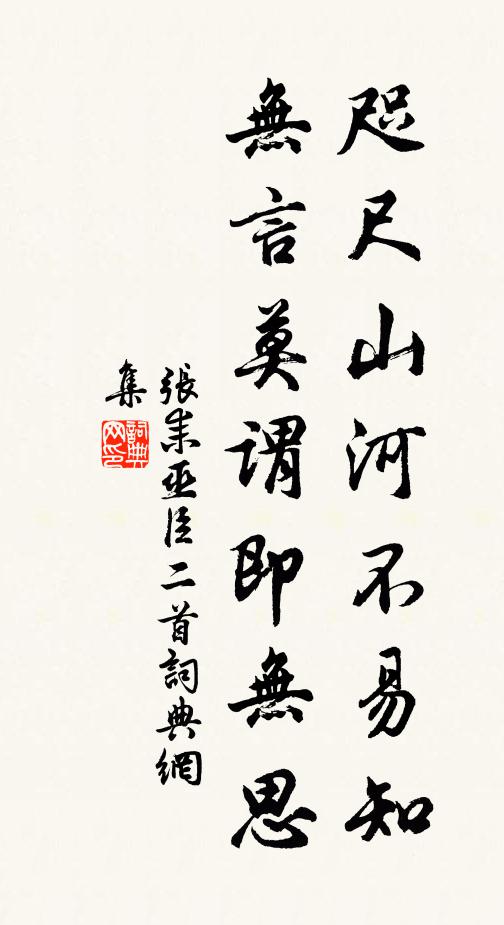 咫尺山河不易知
無言莫謂即無思
張耒巫臣二首詞典網
集
詞典
网印